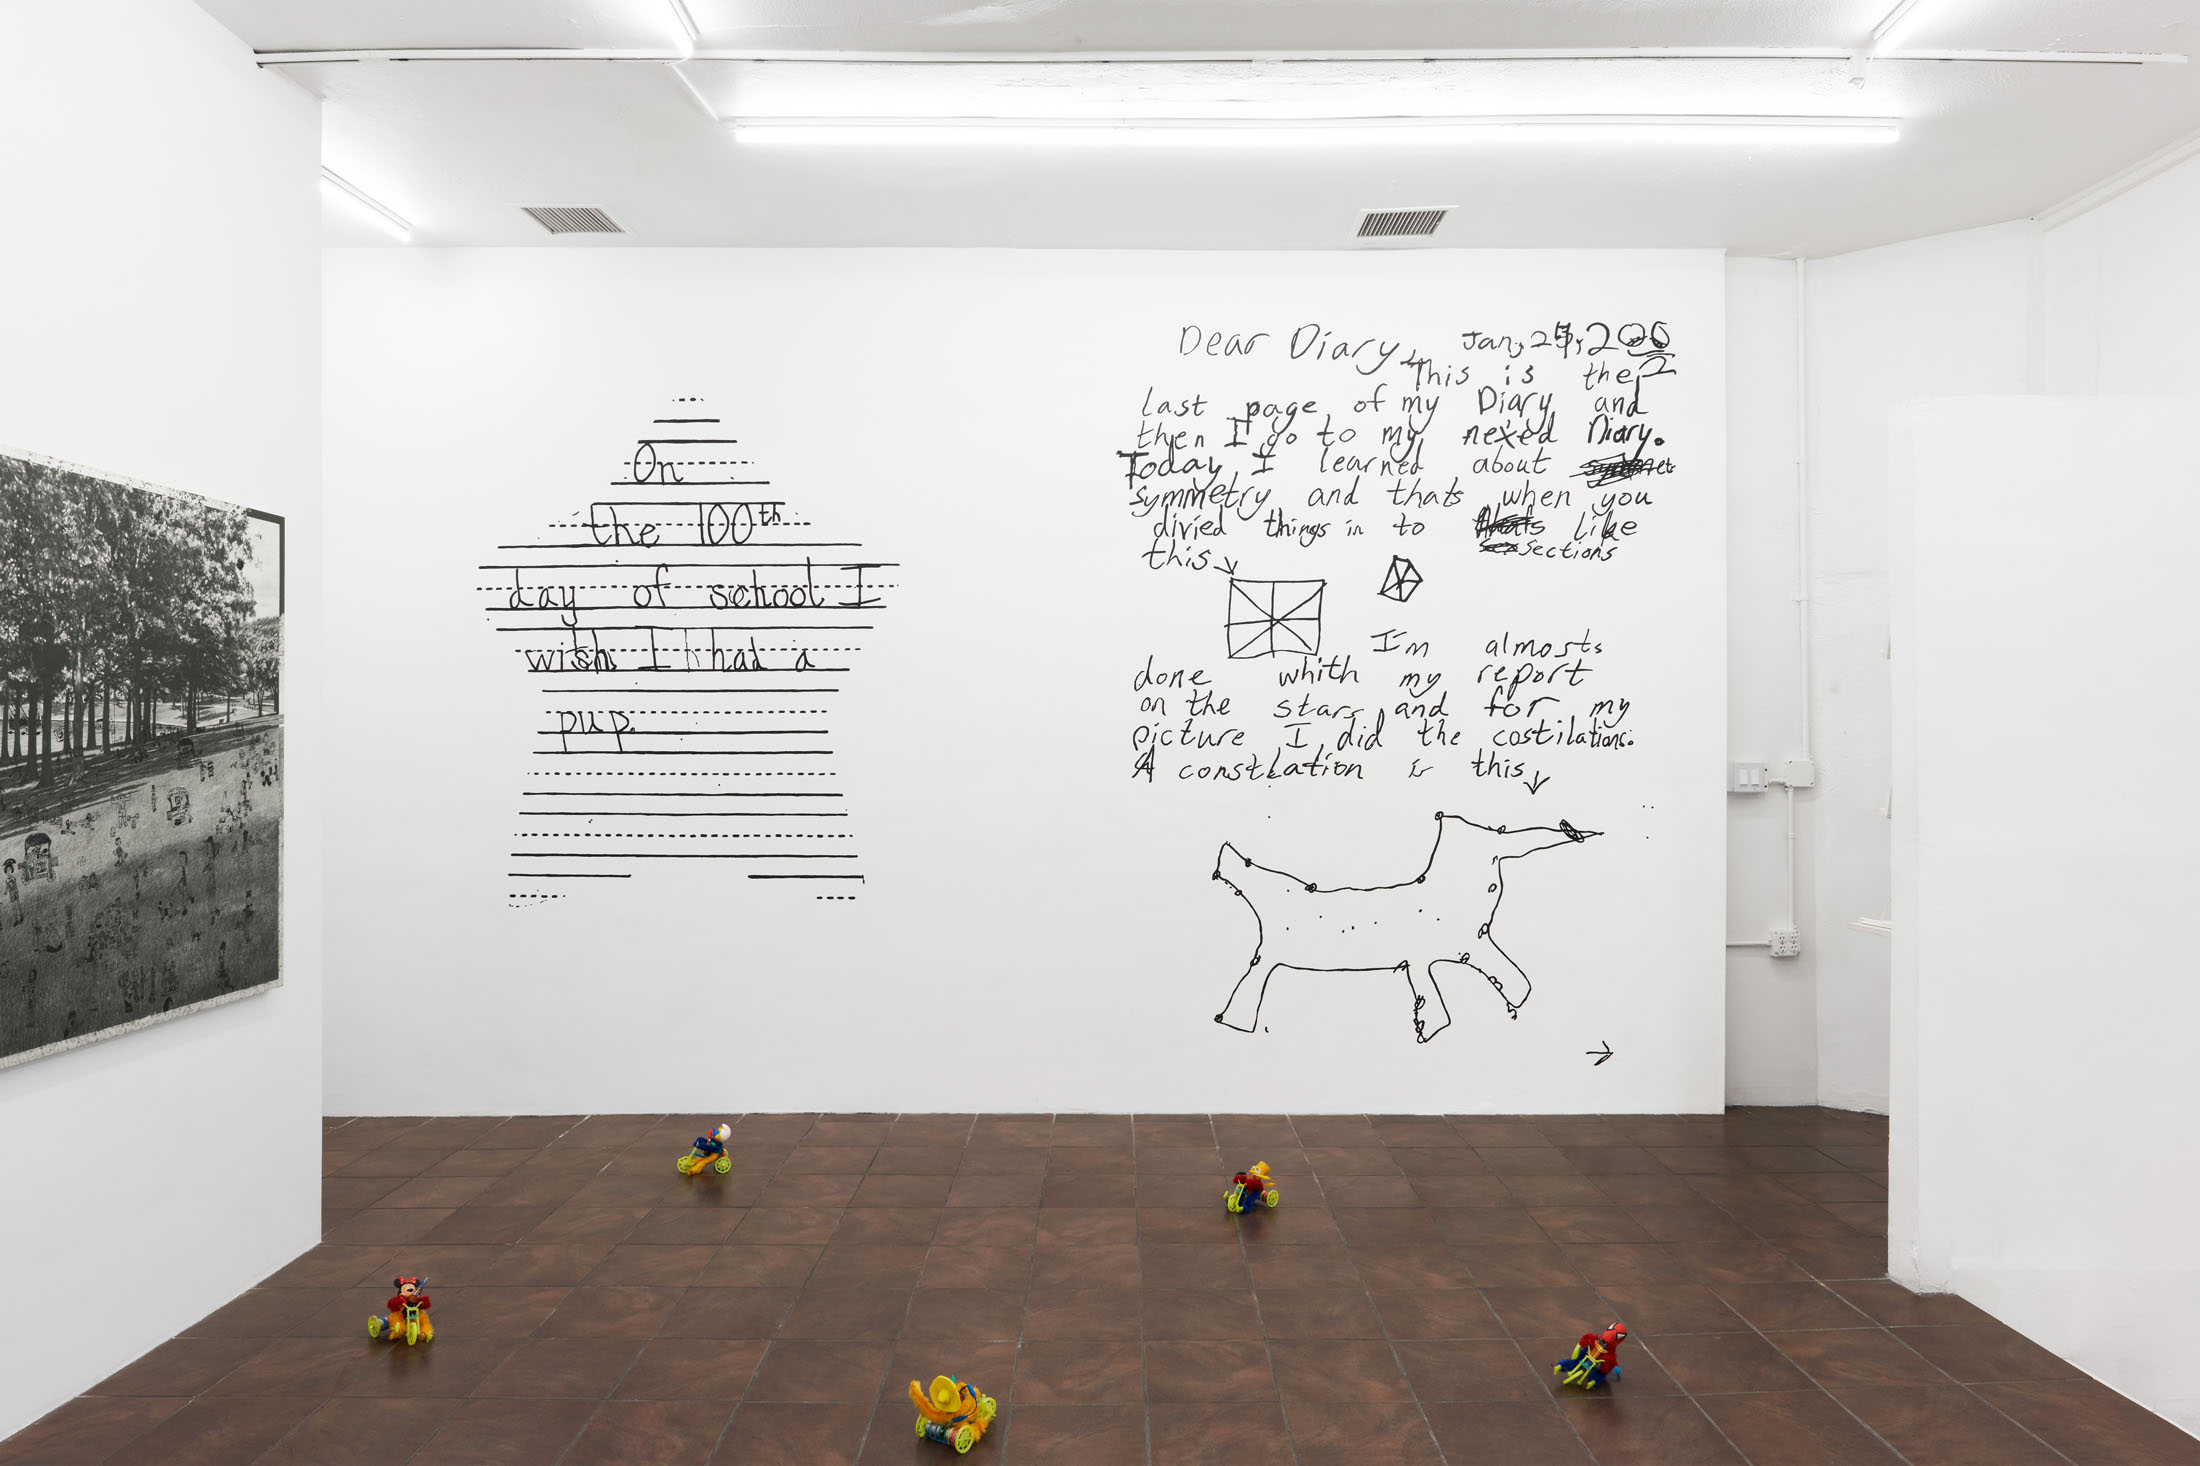 On
the 100th
day of school I
wish I had a
pup.
Dear Diary, Jan, 2
This is the
last page of my Diary and
then I go to my nexed Diary.
Today I learned about
symmetry and thats when you
divied things in to like
sections
this
I'm almosts
done whith my report
on the stars and for my
picture I did the costilations.
A constlation is this